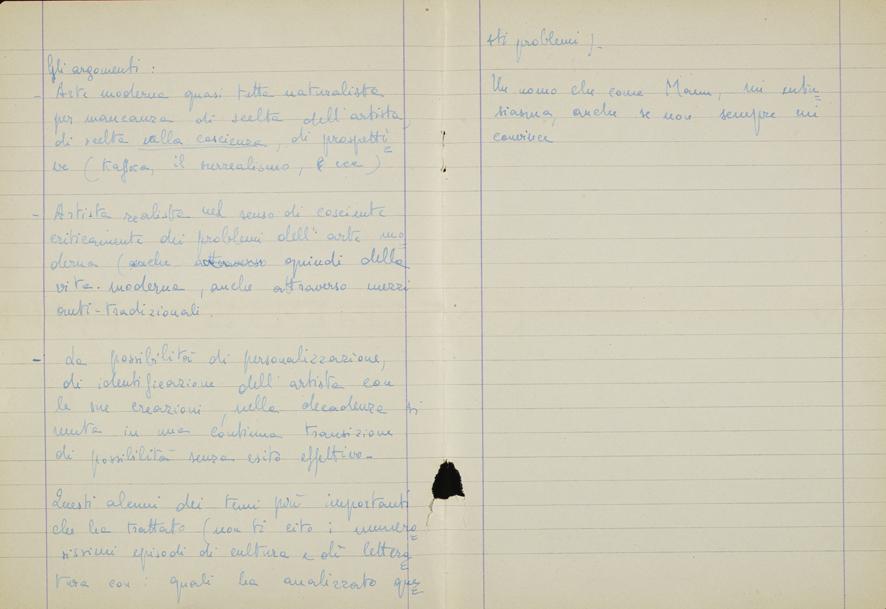 Gli argomenti :
- Arte moderna quasi tutta naturalista
per mancanza di scelta dell'artista,
di scelta nella coscienza, di prospetti
ve (Kafka, il surrealismo, ecc)
- Artista realista nel senso di cosciente
criticamente dei problemi dell'arte mo
derna (anche attraverso quindi della
vita moderna, anche attraverso mezzi
anti-tradizionali.
- La possibilità di personalizzazione,
di identificazione dell'artista con
le sue creazioni, nella decadenza si
muta in una continua transizione
di possibilità senza esito effettivo-
Questi alcuni dei temi più importanti
che ha trattato (non ti cito i nume=
rosissimi episodi di cultura e di lettera
tura con i quali ha analizzato que
sti problemi).
Un uomo che come Mann, mi entu=
siasma, anche se non sempre mi
convince